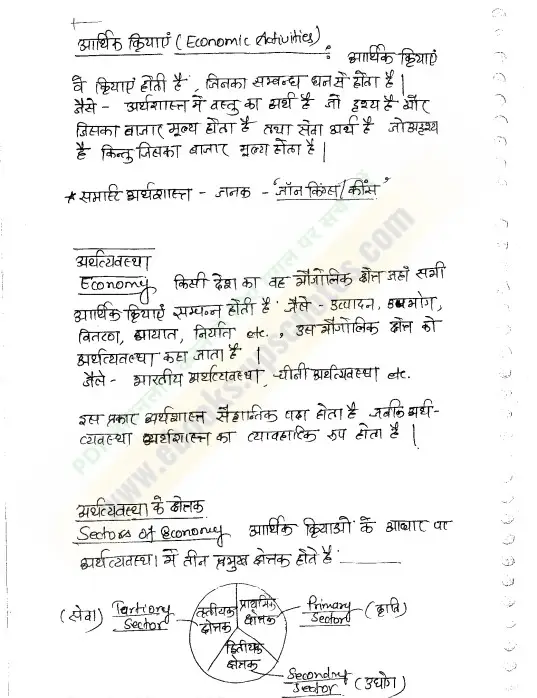 आर्थिक क्रियाएं (Economic Activities) : आर्थिक क्रियाएं
वे क्रियाएं होती है, जिनका सम्बन्ध धन से होता है |
जैसे - अर्थशास्त्र में वस्तु का अर्थ है जो दृश्य है और
जिसका बाजार मूल्य होता है तथा सेवा अर्थ है जो अदृश्य
है किन्तु जिसका बाजार मूल्य होता है |
* समष्टि अर्थशास्त्र - जनक - 'जॉन किंग्स/कींस'
अर्थव्यवस्था
Economy किसी देश का वह भौगोलिक क्षेत्र जहाँ सभी
आर्थिक क्रियाएं सम्पन्न होती है जैसे - उत्पादन, उपभोग,
वितरण, आयात, निर्यात etc., उस भौगोलिक क्षेत्र को
अर्थव्यवस्था कहा जाता है |
जैसे - भारतीय अर्थव्यवस्था, चीनी अर्थव्यवस्था etc.
इस प्रकार अर्थशास्त्र सैद्धान्तिक पक्ष होता है जबकि अर्थ-
व्यवस्था अर्थशास्त्र का व्यावहारिक रूप होता है |
अर्थव्यवस्था के क्षेत्रक
Sectors of Economy आर्थिक क्रियाओं के आधार पर
अर्थव्यवस्था में तीन प्रमुख क्षेत्रक होते है
(सेवा) Tertiary Sector
तृतीयक क्षेत्रक
प्राथमिक क्षेत्रक
Primary Sector (कृषि)
द्वितीयक क्षेत्रक
Secondry Sector (उद्योग)